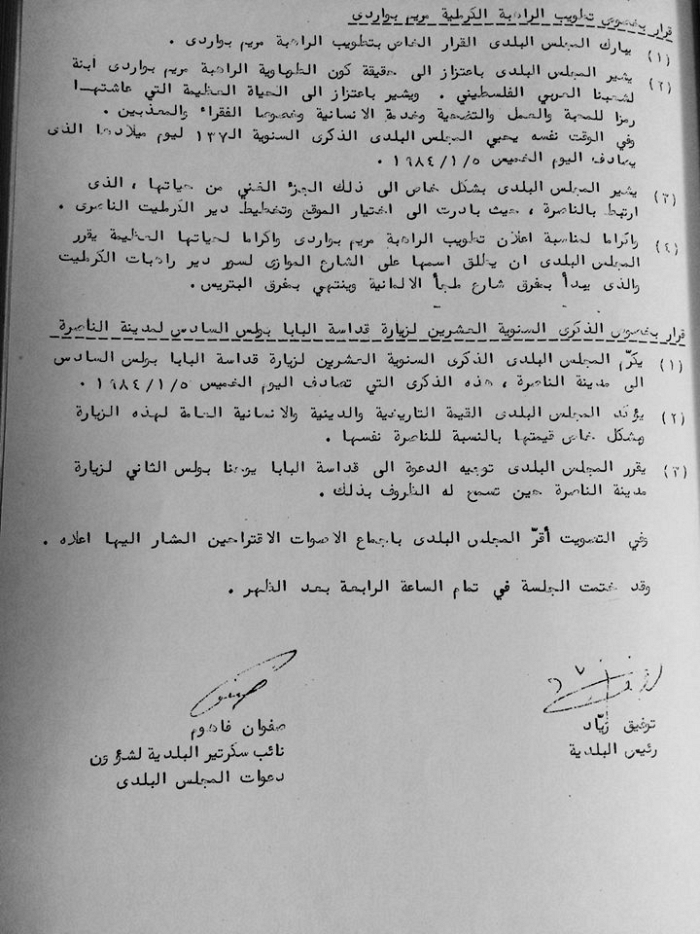 قرار بخصوص تطويب الراهبة الكرملية مريم بواردى
(١) يبارك المجلس البلدى القرار الخاص بتطويب الراهبة مريم بواردى .
(٢) يشير المجلس البلدى باعتزاز الى حقيقة كون الطوباوية الراهبة مريم بواردى أبنة
لشعبنا العربي الفلسطيني . ويشير باعتزاز الى الحياة العظيمة التي عاشتها
رمزا للمحبة والعمل والتضحية وخدمة الانسانية وخصوصا الفقراء والمعذبين .
وفي الوقت نفسه يحيي المجلس البلدى الذكرى السنوية الـ١٣٧ ليوم ميلادها الذى
يصادف اليوم الخميس ١٩٨٤/١/٥ .
(٣) يشير المجلس البلدى بشكل خاص الى ذلك الجزء الغني من حياتها ، الذى
ارتبط بالناصرة ، حيث بادرت الى اختيار الموقع وتخطيط دير الكرمليت الناصرى .
(٤) واكراما لمناسبة اعلان تطويب الراهبة مريم بواردى واكراما لحياتها العظيمة يقرر
المجلس البلدى ان يطلق اسمها على الشارع الموازى لسور دير راهبات الكرمليت
والذى يبدأ بمفرق شارع ملجأ الالمانية وينتهي بمفرق البتريس .
قرار بخصوص الذكرى السنوية العشرين لزيارة قداسة البابا بولس السادس لمدينة الناصرة
(١) يكرّم المجلس البلدى الذكرى السنوية العشرين لزيارة قداسة البابا بولس السادس
الى مدينة الناصرة ، هذه الذكرى التي تصادف اليوم الخميس ١٩٨٤/١/٥ .
(٢) يؤكد المجلس البلدى القيمة التاريخية والدينية والانسانية العامة لهذه الزيارة
وبشكل خاص قيمتها بالنسبة للناصرة نفسها .
(٣) يقرر المجلس البلدى توجيه الدعوة الى قداسة البابا يوحنا بولس الثاني لزيارة
مدينة الناصرة حين تسمح له الظروف بذلك .
وفي التصويت أقرّ المجلس البلدى باجماع الاصوات الاقتراحين المشار اليها اعلاه .
وقد ختمت الجلسة في تمام الساعة الرابعة بعد الظهر .
توفيق زيّاد
رئيس البلدية
صفوان فاهوم
نائب سكرتير البلدية لشؤون
دعوات المجلس البلدى